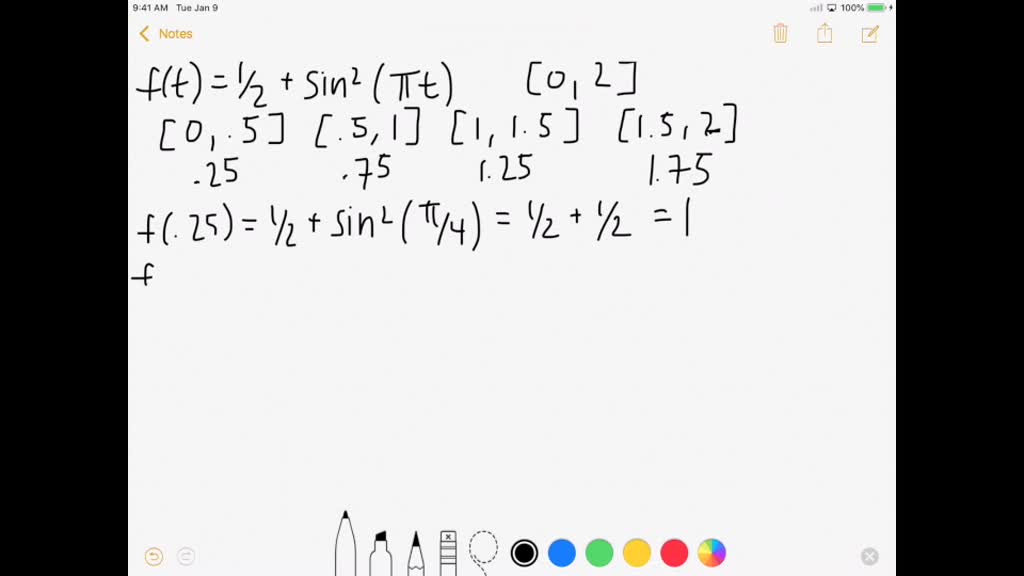 9:41 AM Tue Jan 9 100%
Notes
f(t) = 1/2 + sin² (πt) [0, 2]
[0, .5] [.5, 1] [1, 1.5] [1.5, 2]
.25 .75 1.25 1.75
f(.25) = 1/2 + sin² (π/4) = 1/2 + 1/2 = 1
f